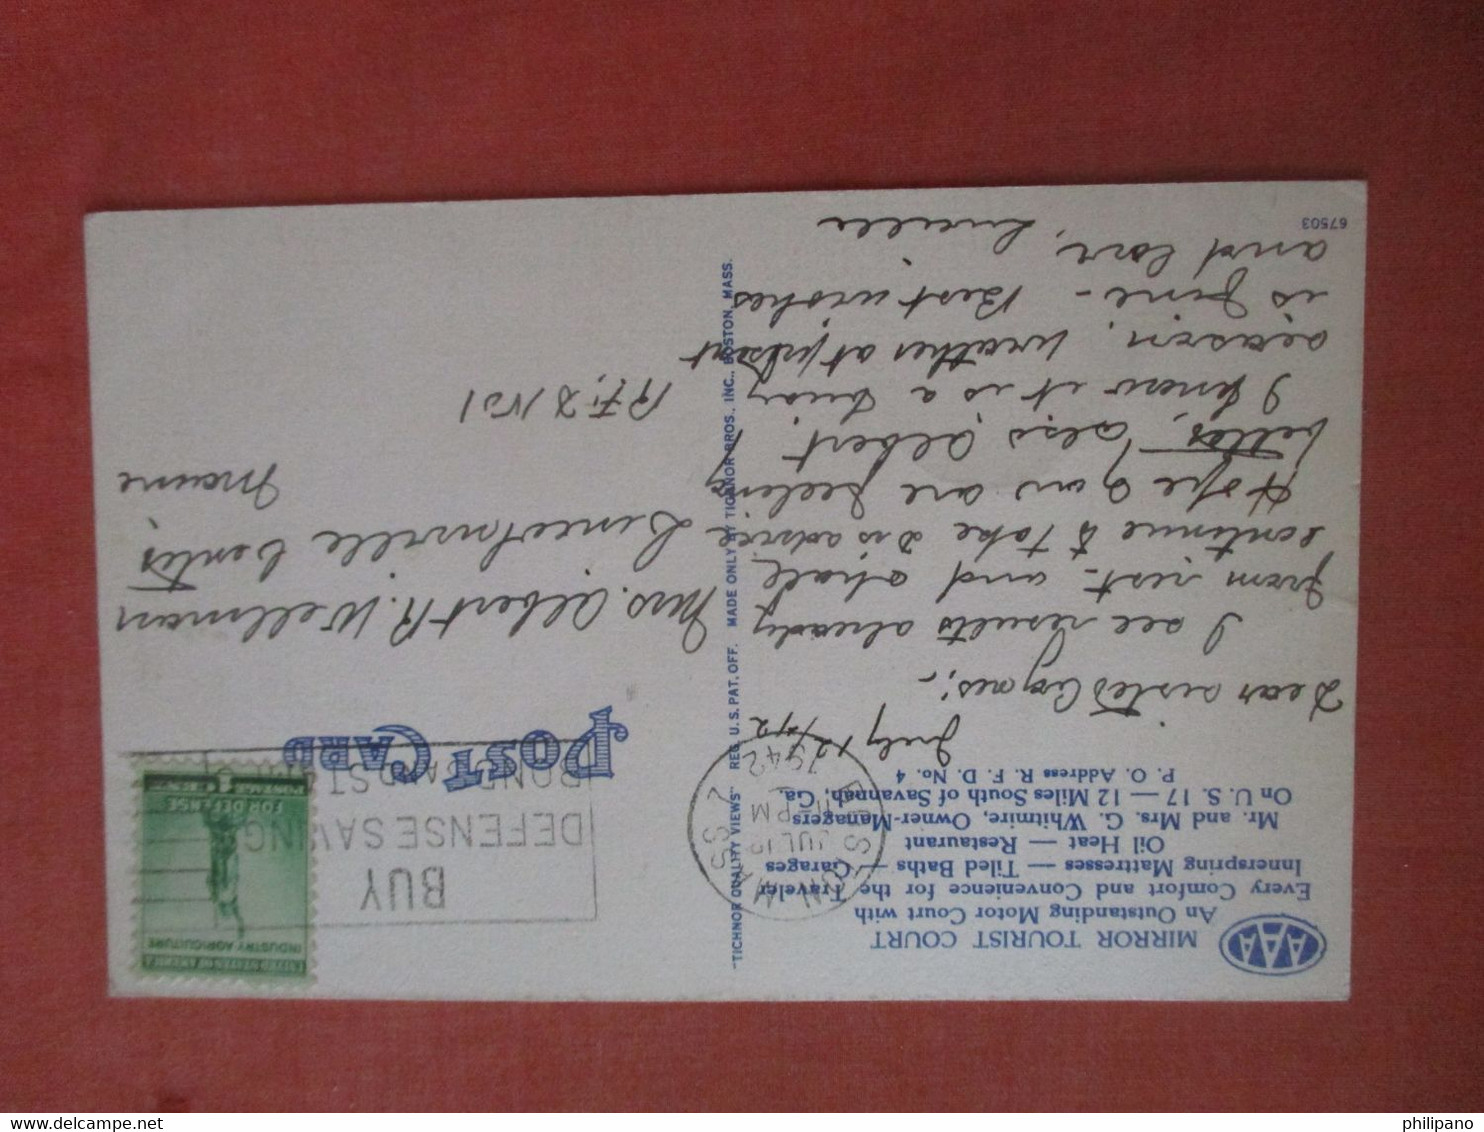 MIRROR TOURIST COURT
An Outstanding Motor Court with
Every Comfort and Convenience for the Traveler
Innerspring Mattresses — Tiled Baths — Garages
Oil Heat — Restaurant
Mr. and Mrs. G. Whitmire, Owner-Managers
On U. S. 17 — 12 Miles South of Savannah, Ga.
P. O. Address R. F. D. No. 4
AAA
July 12/42
Dear sister
I see results already
from rest - and shall
continue to take Dr's advice
Hope you are feeling
better, also Albert.
I know it is a busy
season. Weather at present
is fine - Best wishes
and love, Lucille
67503
"TICHNOR QUALITY VIEWS" REG. U. S. PAT. OFF. MADE ONLY BY TICHNOR BROS., INC., BOSTON, MASS.
POST CARD
JUL 12
11 - PM
1942
MASS
BUY
DEFENSE SAVING
BONDS AND STAMPS
UNITED STATES OF AMERICA
INDUSTRY AGRICULTURE
FOR DEFENSE
POSTAGE 1 CENT
Mrs. Albert R. Wellman
Lincolnville Center
Maine
R.F.D. No 1
philipano
delcampe.net